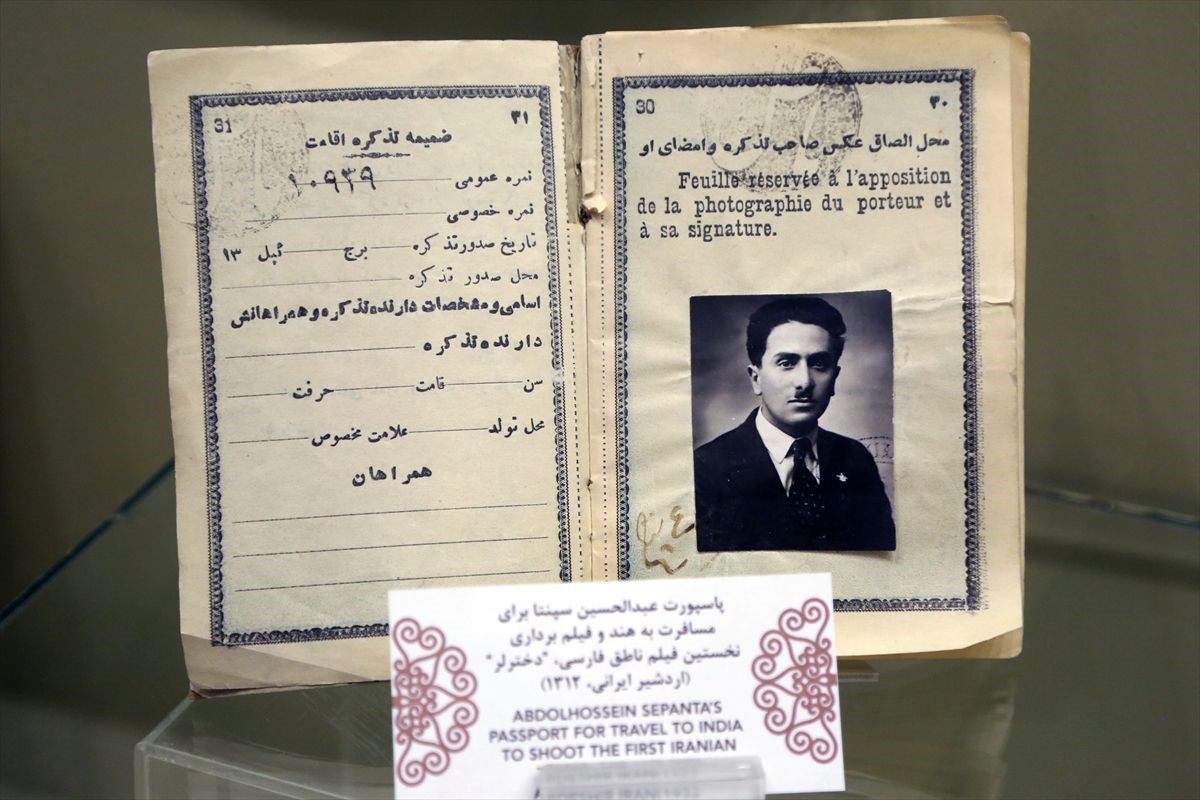 31
۳۱
ضمیمه تذکره اقامت
نمره عمومی ۱۰۹۳۹
نمره خصوصی
تاریخ صدور تذکره برج ئیل ۱۳
محل صدور تذکره
اسامی و مشخصات دارنده تذکره و همراهانش
دارنده تذکره
سن قامت حرفت
محل تولد علامت مخصوص
همراهان
30
۳۰
محل الصاق عکس صاحب تذکره و امضای او
Feuille réservée à l'apposition
de la photographie du porteur et
à sa signature.
پاسپورت عبدالحسین سپنتا برای
مسافرت به هند و فیلم برداری
نخستین فیلم ناطق فارسی، "دخترلر"
(اردشیر ایرانی، ۱۳۱۲)
ABDOLHOSSEIN SEPANTA'S
PASSPORT FOR TRAVEL TO INDIA
TO SHOOT THE FIRST IRANIAN